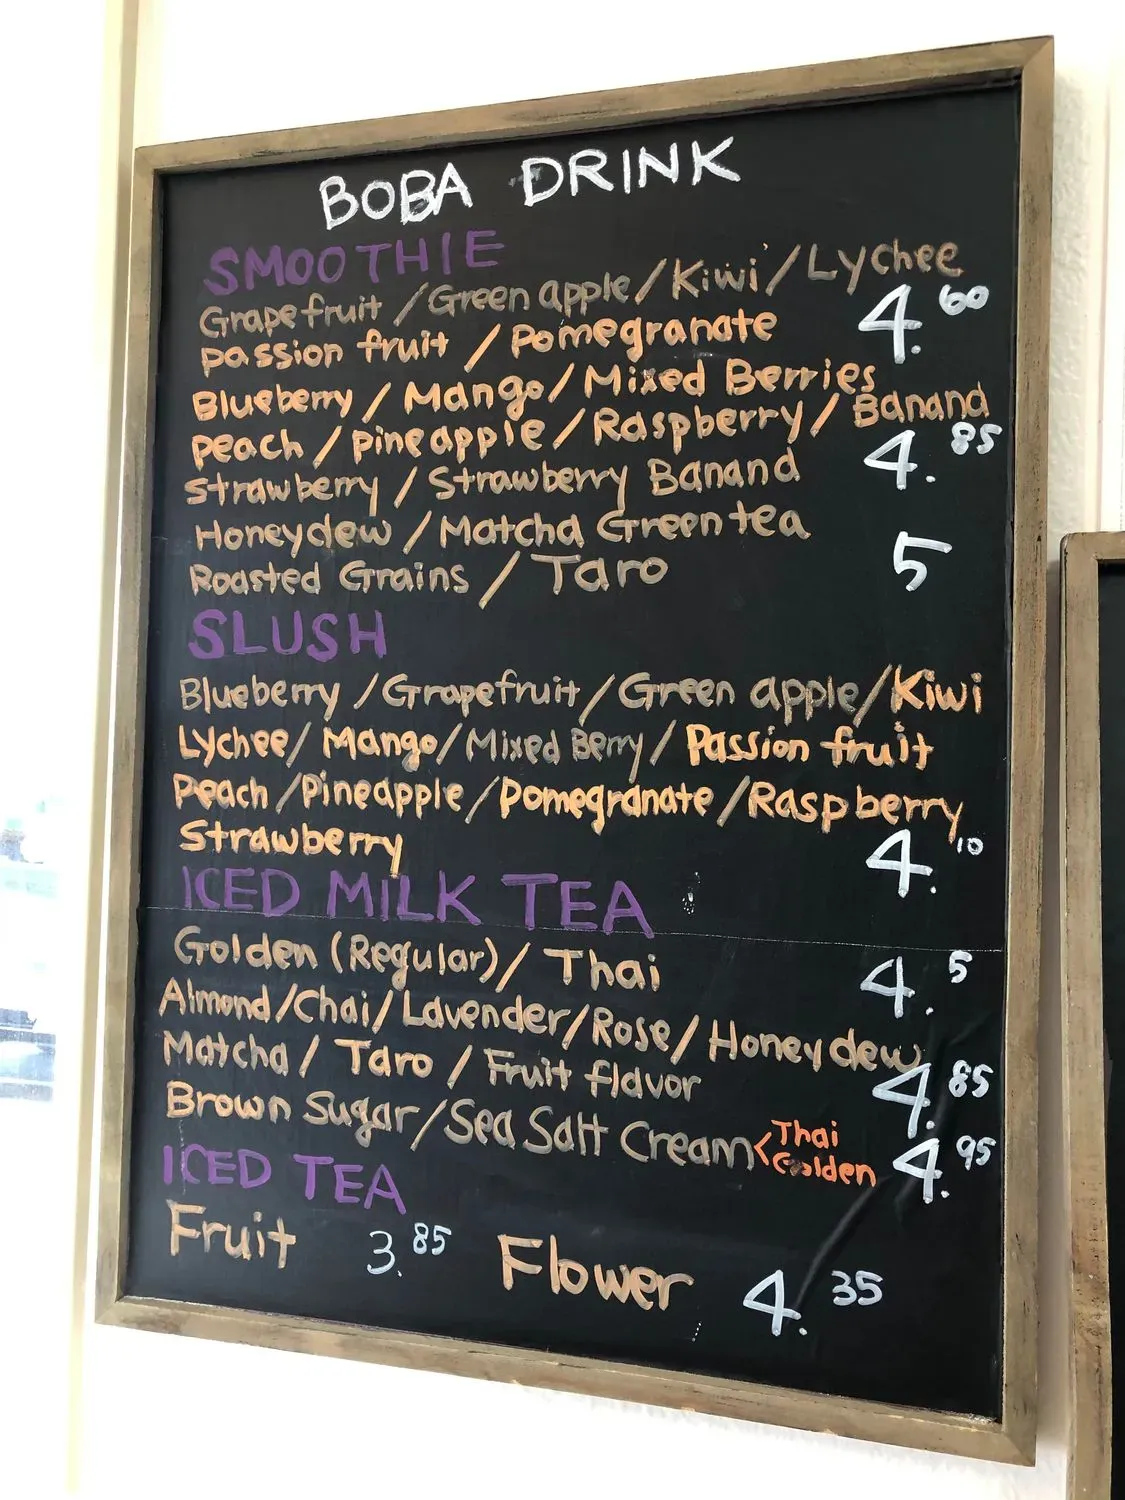 BOBA DRINK
SMOOTHIE
Grapefruit / Green apple / Kiwi / Lychee
Passion fruit / Pomegranate 4.60
Blueberry / Mango / Mixed Berries
Peach / Pineapple / Raspberry / Banana
Strawberry / Strawberry Banana 4.85
Honeydew / Matcha Green tea
Roasted Grains / Taro 5
SLUSH
Blueberry / Grapefruit / Green apple / Kiwi
Lychee / Mango / Mixed Berry / Passion fruit
Peach / Pineapple / Pomegranate / Raspberry
Strawberry 4.10
ICED MILK TEA
Golden (Regular) / Thai 4.5
Almond / Chai / Lavender / Rose / Honeydew
Matcha / Taro / Fruit flavor 4.85
Brown Sugar / Sea Salt Cream < Thai Golden 4.95
ICED TEA
Fruit 3.85 Flower 4.35